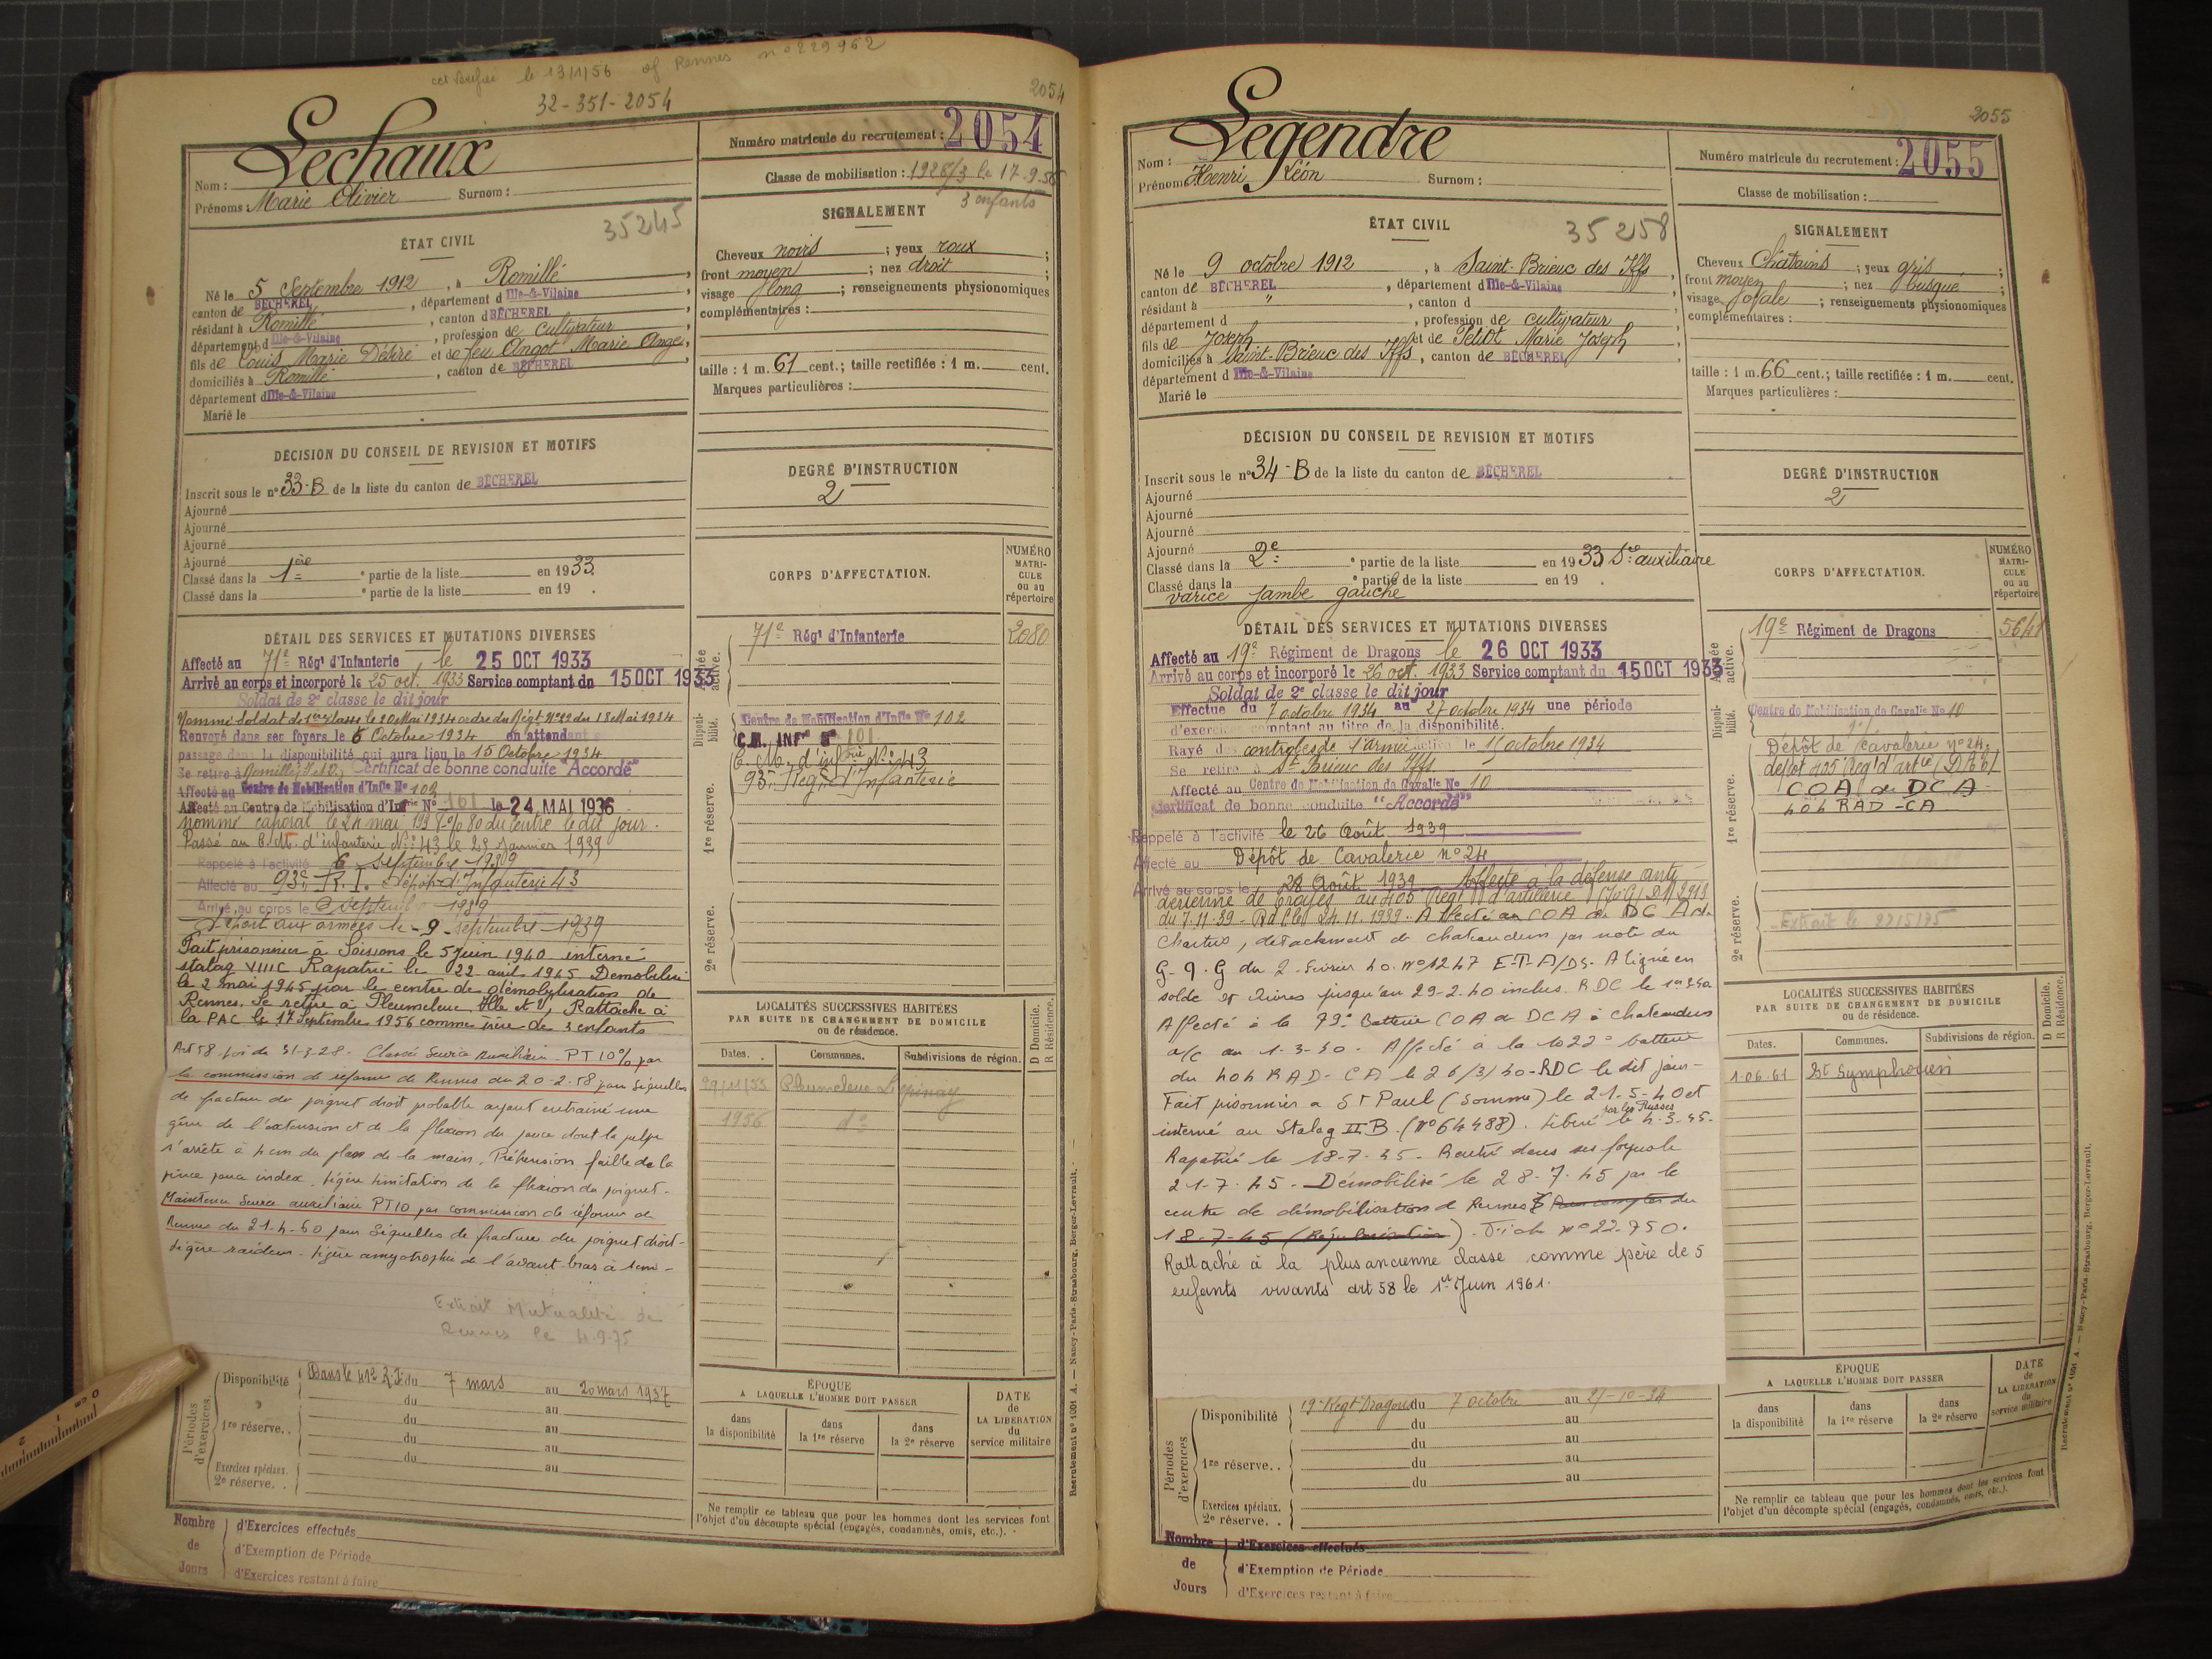 cct Vérifié le 13/1/56 of Rennes n° 229962
32-351-2054
2054
Lechaux
Nom :
Prénoms : Marie Olivier Surnom :
35245
ÉTAT CIVIL
Né le 5 Septembre 1912, à Romillé,
canton de BÉCHEREL, département d Ille-&-Vilaine
résidant à Romillé, canton d BÉCHEREL
département d Ille-&-Vilaine, profession de cultivateur
fils de Louis Marie Désiré et de feu Angot Marie Ange,
domiciliés à Romillé, canton de BÉCHEREL
département d Ille-&-Vilaine
Marié le
DÉCISION DU CONSEIL DE REVISION ET MOTIFS
Inscrit sous le n° 33-B de la liste du canton de BÉCHEREL
Ajourné
Ajourné
Ajourné
Ajourné
Classé dans la 1ère e partie de la liste en 1933.
Classé dans la e partie de la liste en 19 .
DÉTAIL DES SERVICES ET MUTATIONS DIVERSES
Affecté au 71e Régt d'Infanterie, le 25 OCT 1933
Arrivé au corps et incorporé le 25 oct. 1933 Service comptant du 15 OCT 1933
Soldat de 2e classe le dit jour
Nommé Soldat de 1ère classe le 20 Mai 1934 ordre du Régt N°22 du 18 Mai 1934
Renvoyé dans ses foyers le 6 Octobre 1934 en attendant s
passage dans la disponibilité qui aura lieu le 15 Octobre 1934
Se retire à Romillé, I. et V. Certificat de bonne conduite "Accordé"
Affecté au Centre de Mobilisation d'Infie N° 102
Affecté au Centre de Mobilisation d'Infrie N° 101 le 24 MAI 1936
nommé caporal le 24 mai 1938 o/o 80 du Centre le dit jour.
Passé au C.M. d'infanterie N° 43 le 23 Janvier 1939
Rappelé à l'activité 6 Septembre 1939
Affecté au 93e R.I. Dépôt d'Infanterie 43
Arrivé au corps le 6 Septembre 1939
Départ aux armées le 9 Septembre 1939
Fait prisonnier à Soissons le 5 Juin 1940 interné
stalag VIIIC Rapatrié le 22 avril 1945 Démobilisé
le 2 mai 1945 par le centre de démobilisation de
Rennes. Se retire à Pleumeleuc Ille et V, Rattaché à
la PAC le 17 Septembre 1956 comme père de 3 enfants
Art 58 Loi du 31-3-28. Classé Service Auxiliaire - PT 10% par
la commission de réforme de Rennes du 20-2-58 pour séquelles
de fracture du poignet droit probable ayant entrainé une
gêne de l'extension et de la flexion du pouce dont la pulpe
s'arrête à 4 cm du plan de la main. Préhension faible de la
pince pouce index. Légère limitation de la flexion du poignet.
Maintenu Service auxiliaire PT 10 par commission de réforme de
Rennes du 21-4-60 pour Séquelles de fracture du poignet droit -
Légère raideur - légère amyotrophie de l'avant-bras à 1 cm -
Extrait Mutualité de
Rennes le 4.9.75
Périodes d'exercices.
Disponibilité Dans le 41e R.I. du 7 mars au 20 mars 1937
du au
1re réserve. . du au
du au
du au
Exercices spéciaux.
2e réserve. .
Nombre de Jours
d'Exercices effectués
d'Exemption de Période
d'Exercices restant à faire
Numéro matricule du recrutement : 2054
Classe de mobilisation : 1926/3 le 17.9.56
3 enfants
SIGNALEMENT
Cheveux noirs ; yeux roux ;
front moyen ; nez droit ;
visage long ; renseignements physionomiques
complémentaires :
taille : 1 m. 61 cent.; taille rectifiée : 1 m. cent.
Marques particulières :
DEGRÉ D'INSTRUCTION
2
CORPS D'AFFECTATION.
NUMÉRO MATRICULE ou au répertoire
Armée active.
71e Régt d'Infanterie 2080
Disponibilité.
Centre de Mobilisation d'Infie N° 102
C.M. INFie N° 101
C.M. d'infrie N° 43
93e Régt d'Infanterie
1re réserve.
2e réserve.
LOCALITÉS SUCCESSIVES HABITÉES
PAR SUITE DE CHANGEMENT DE DOMICILE
ou de résidence.
D Domicile. R Résidence.
Dates. Communes. Subdivisions de région.
29/11/55 Pleumeleuc
1956 do
ÉPOQUE
A LAQUELLE L'HOMME DOIT PASSER
dans la disponibilité
dans la 1re réserve
dans la 2e réserve
DATE de LA LIBÉRATION du service militaire
Ne remplir ce tableau que pour les hommes dont les services font
l'objet d'un décompte spécial (engagés, condamnés, omis, etc.).
Recrutement n° 1001 A. — Nancy-Paris-Strasbourg, Berger-Levrault.
2055
Legendre
Nom :
Prénoms Henri Léon Surnom :
35258
ÉTAT CIVIL
Né le 9 octobre 1912, à Saint-Brieuc des Iffs,
canton de BÉCHEREL, département d Ille-&-Vilaine
résidant à ", canton d
département d , profession de cultivateur
fils de Joseph et de Petiot Marie Joseph
domiciliés à Saint-Brieuc des Iffs, canton de BÉCHEREL
département d Ille-&-Vilaine
Marié le
DÉCISION DU CONSEIL DE REVISION ET MOTIFS
Inscrit sous le n° 34-B de la liste du canton de BÉCHEREL
Ajourné
Ajourné
Ajourné
Ajourné
Classé dans la 2e e partie de la liste en 1933 Sce auxiliaire
Classé dans la e partie de la liste en 19 .
varice jambe gauche
DÉTAIL DES SERVICES ET MUTATIONS DIVERSES
Affecté au 19e Régiment de Dragons le 26 OCT 1933
Arrivé au corps et incorporé le 26 oct. 1933 Service comptant du 15 OCT 1933
Soldat de 2e classe le dit jour
Effectue du 7 octobre 1934 au 27 octobre 1934 une période
d'exercice comptant au titre de la disponibilité.
Rayé des contrôles de l'armée active le 15 octobre 1934
Se retire à St Brieuc des Iffs
Affecté au Centre de Mobilisation de Cavalie No 10
Certificat de bonne conduite "Accordé"
Rappelé à l'activité le 26 Août 1939
Affecté au Dépôt de Cavalerie n° 24
Arrivé au corps le 28 Août 1939 Affecté à la défense anti
aérienne de Troyes au 405 Régt d'artillerie (J.G) DM 2913
du 7.11.39 - Rd Clel 24.11.1939. Affecté au COA de DC Art.
Chartres, détachement de chateaudun par note du
G.Q.G du 2 février 40 n° 1247 E.T.A/DS. Aligné en
solde et vivres jusqu'au 29-2-40 inclus. RDC le 1er 3.40
Affecté à la 79e Batterie COA de DCA à Chateaudun
a/c du 1-3-40. Affecté à la 1022e batterie
du 404 RAD-CA le 26/3/40 - RDC le dit jour -
Fait prisonnier à St Paul (Somme) le 21-5-40 et
interné au Stalag II B. (N° 64488). Libéré par les Russes le 4-3-45.
Rapatrié le 18-7-45 - Rentré dans ses foyers le
21-7-45 - Démobilisé le 28-7-45 par le
centre de démobilisation de Rennes
18-7-45 (Régularisation). Fiche n° 22.750.
Rattaché à la plus ancienne classe comme père de 5
enfants vivants art 58 le 1er Juin 1961.
Périodes d'exercices
Disponibilité 19e Régt Dragons du 7 Octobre au 27-10-34
du au
1re réserve. . du au
du au
du au
Exercices spéciaux.
2e réserve. .
Nombre de Jours
d'Exercices effectués
d'Exemption de Période
d'Exercices restant à faire
Numéro matricule du recrutement : 2055
Classe de mobilisation :
SIGNALEMENT
Cheveux Châtains ; yeux gris ;
front moyen ; nez busqué ;
visage ovale ; renseignements physionomiques
complémentaires :
taille : 1 m. 66 cent.; taille rectifiée : 1 m. cent.
Marques particulières :
DEGRÉ D'INSTRUCTION
2
CORPS D'AFFECTATION.
NUMÉRO MATRICULE ou au répertoire
Armée active.
19e Régiment de Dragons
Disponibilité.
Centre de Mobilisation de Cavalie No 10
Dépôt de Cavalerie n° 24.
dépôt 405 Rég d'artie
COA de DCA
404 RAD-CA
1re réserve.
2e réserve.
LOCALITÉS SUCCESSIVES HABITÉES
PAR SUITE DE CHANGEMENT DE DOMICILE
ou de résidence.
D Domicile. R Résidence.
Dates. Communes. Subdivisions de région.
1-06-61 St Symphorien
ÉPOQUE
A LAQUELLE L'HOMME DOIT PASSER
dans la disponibilité
dans la 1re réserve
dans la 2e réserve
DATE de LA LIBÉRATION du service militaire
Ne remplir ce tableau que pour les hommes dont les services font
l'objet d'un décompte spécial (engagés, condamnés, omis, etc.).
Recrutement n° 1001 A. — Nancy-Paris-Strasbourg, Berger-Levrault.